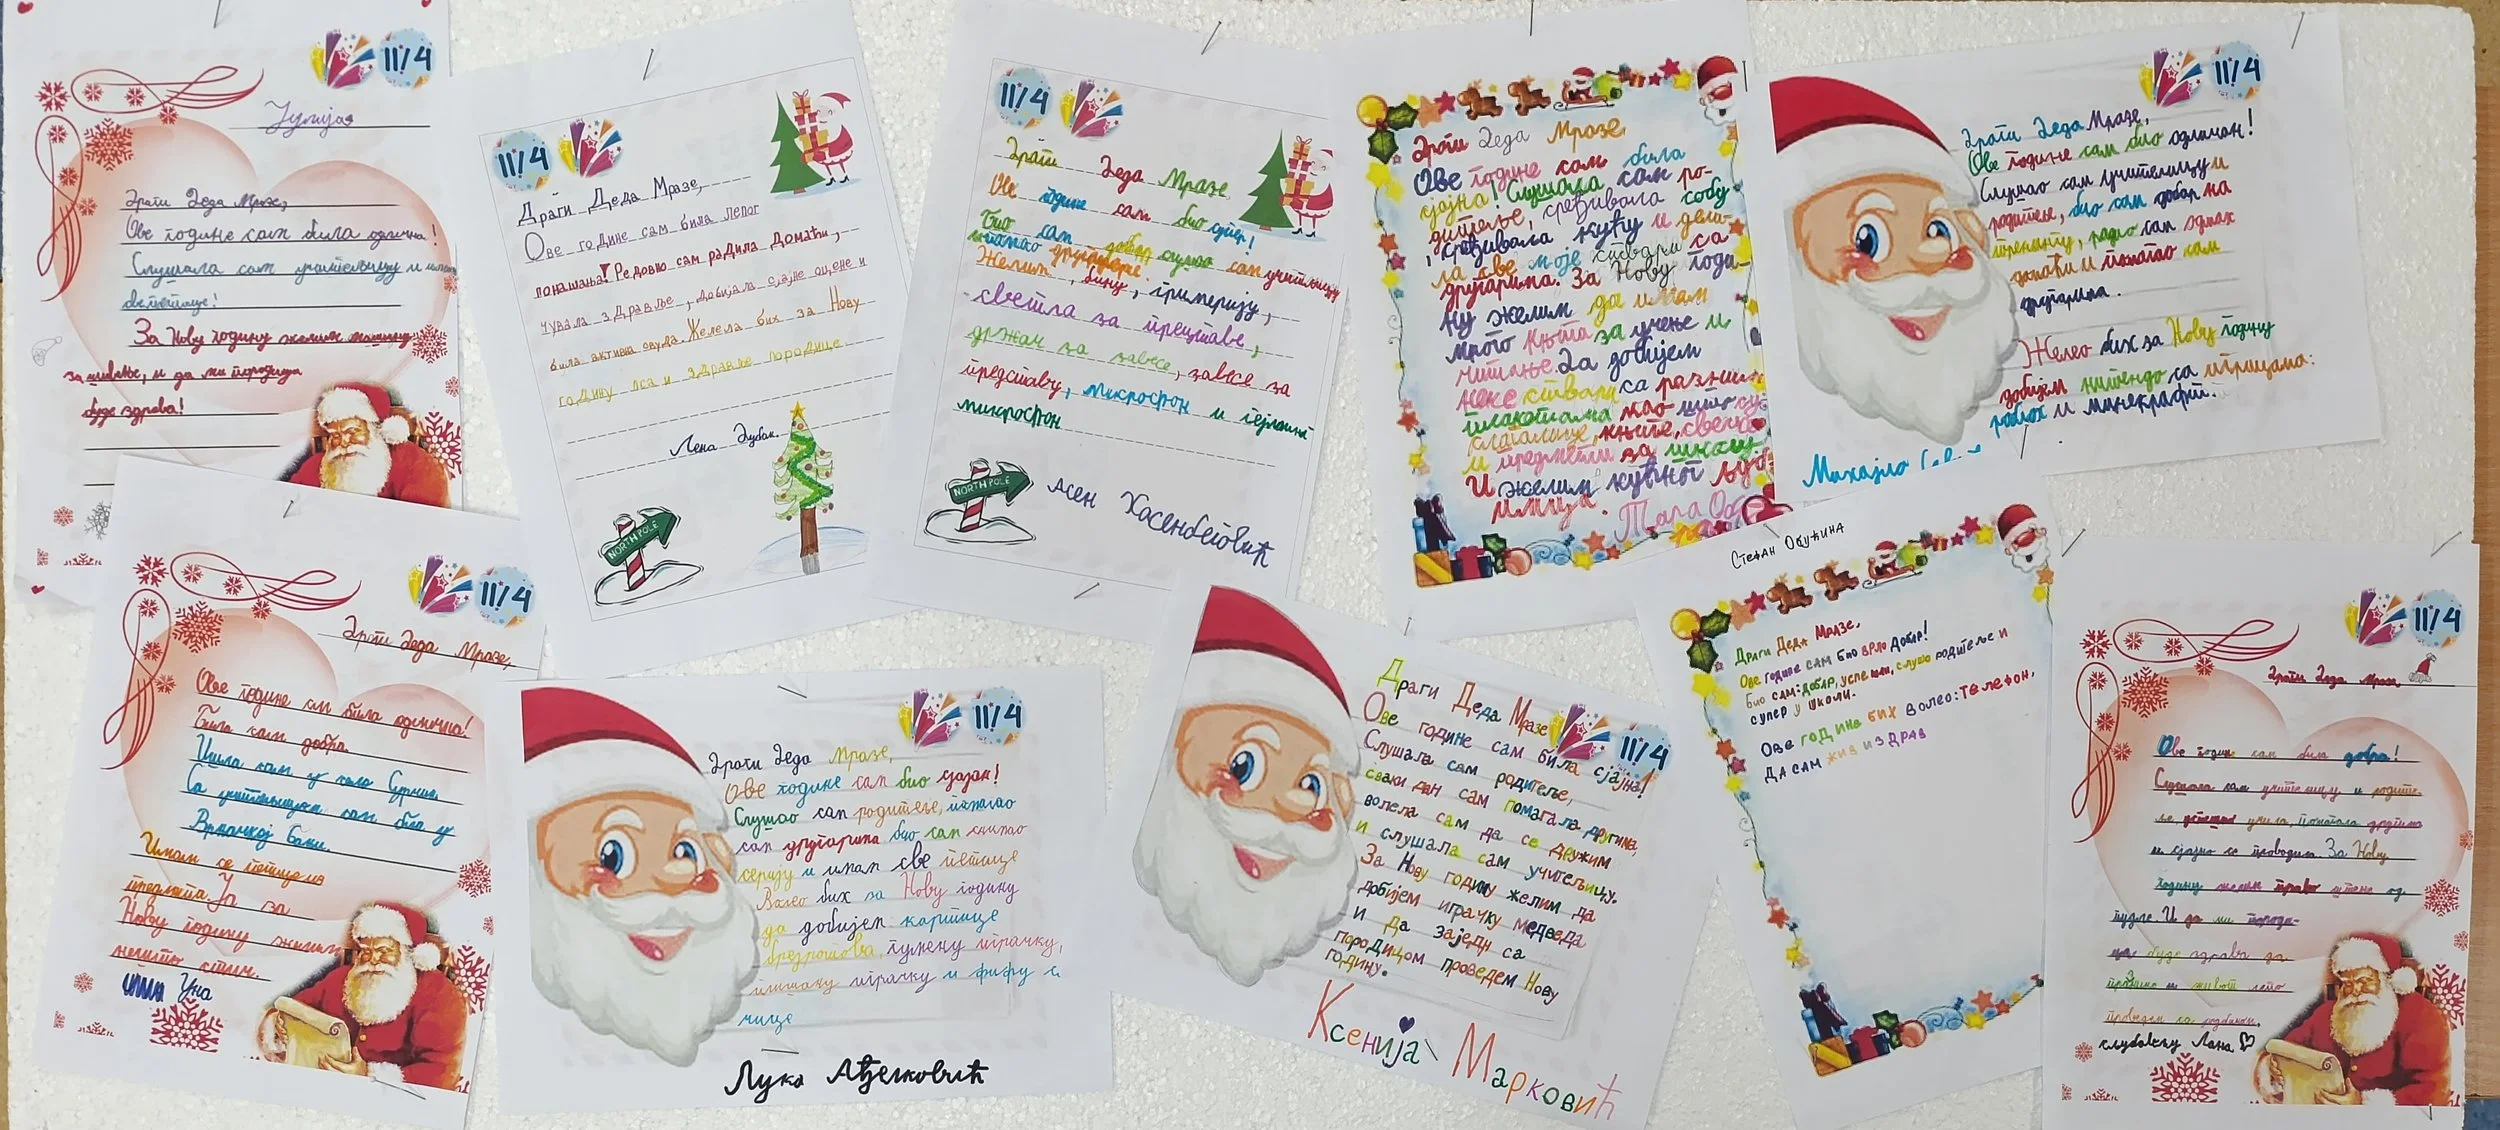 11/4
Јулија
Драги Деда Мразе,
Ове године сам била одлична!
Слушала сам учитељицу и имам
све петице!
За Нову годину желим машину
за шивење, и да ми породица
буде здрава!
11/4
Драги Деда Мразе,
Ове године сам била лепог
понашања! Редовно сам радила домаћи,
чувала здравље, добијала сјајне оцене и
била активна свуда. Желела бих за Нову
годину пса и здравље породице.
Лена Дубак.
NORTH POLE
11/4
Драги Деда Мразе,
Ове године сам био супер!
Био сам добар слушао сам учитељицу
помагао другарима.
Желим, бину, гримерију,
светла за представе,
држач за завесе, завесе за
представу, микрофон и
микрофон
NORTH POLE
Асен Хасенбеговић
Драги Деда Мразе
Ове године сам била
сјајна! Слушала сам ро-
дитеље, сређивала собу
, сређивала кућу и дели-
ла све моје ствари са
другарима. За Нову годи-
ну желим да имам
много књига за учење и
читање. Да добијем
неке ствари са разним
плакатама као што су
слагалице, књиге, свеске
и предмети за школу.
И желим кућног љуби
имца. Тара
11/4
Драги Деда Мразе,
Ове године сам био одличан!
Слушао сам учитељицу и
родитеље, био сам добар на
тренингу, радио сам одмах
домаћи и помагао сам
другарима.
Желео бих за Нову годину
добијем нинтендо са игрицама:
роблох и минекрафт.
Михајло
11/4
Драги Деда Мразе,
Ове године сам била одлична!
Била сам добра.
Ишла сам у село Сурчин.
Са учитељицом сам била у
Врњачкој Бањи.
Имам све петице из
предмета. Ја за
Нову годину желим
нешто слич.
Уна
11/4
Драги Деда Мразе,
Ове године сам био сјајан!
Слушао сам родитеље, помагао
сам другарима био сам снимао
серију и имам све петице
Волео бих за Нову годину
да добијем картице
брезплотова, гумену играчку,
плишану играчку и фифу са
чице
Лука Анђелковић
11/4
Драги Деда Мразе
Ове године сам била сјајна!
Слушала сам родитеље,
сваки дан сам помагала другима,
волела сам да се дружим
и слушала сам учитељицу.
За Нову годину желим да
добијем играчку медведа
и да заједн са
породицом проведем Нову
годину.
Ксенија Марковић
Стефан Обућина
Драги Деда Мразе,
Ове године сам био врло добар!
Био сам: добар, успешан, слушо родитеље и
супер у школи.
Ове година бих волео: телефон,
да сам жив и здрав
11/4
Драги Деда Мразе
Ове године сам била добра!
Слушала сам учитељицу и родите-
ље, успешно учила, помагала другима
и сјајно се проводила. За Нову
годину желим право штене од
пудле. И да ми породи-
ца буде здрава да
празнике и живот лепо
проведем са родбином.
Лана